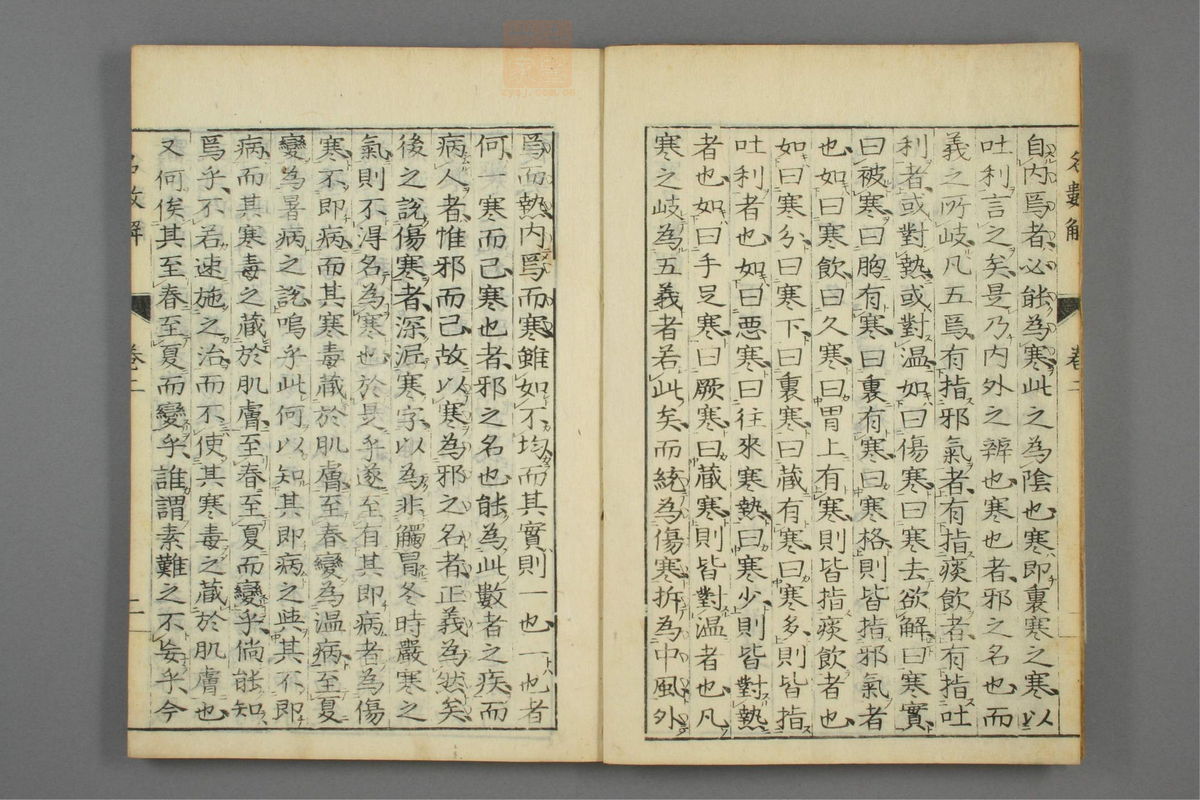 名數解 卷二
自内爲者必能為寒此之為陰也寒即裏寒之寒以
吐利言之矣是乃内外之辨也寒也者邪之名也而
義之所岐凡五焉有指邪氣者有指痰飲者有指吐
利者或對熱或對温如曰傷寒曰寒去欲解曰寒實
曰被寒曰胸有寒曰裏有寒曰寒格則皆指邪氣者
也如曰寒飲曰久寒曰胃上有寒則皆指痰飲者也
如曰寒分曰寒下曰裏寒曰藏有寒曰寒多則皆指
吐利者也如曰悪寒曰往來寒熱曰寒少則皆對熱
者也如曰手足寒曰厥寒曰藏寒則皆對温者也凡
寒之岐為五義者若此矣而統為傷寒拆為中風外
爲而熱内爲而寒雖如不均而其實則一也一也者
何一寒而已寒也者邪之名也能為此數者之疾而
病人者惟邪而已故以寒為邪之名者正義為然矣
後之說傷寒者深泥寒字以為非觸冒冬時嚴寒之
氣則不得名為寒也於是乎遂至有其即病者為傷
寒不即病而其寒毒藏於肌膚至春變為温病至夏
變為暑病之說嗚乎此何以知其即病之與其不即
病而其寒毒之藏於肌膚至春至夏而變乎倘能知
爲乎不若速施之治而不使其寒毒之藏於肌膚也
又何俟其至春至夏而變乎誰謂素難之不妄乎今
名數解 卷二 二